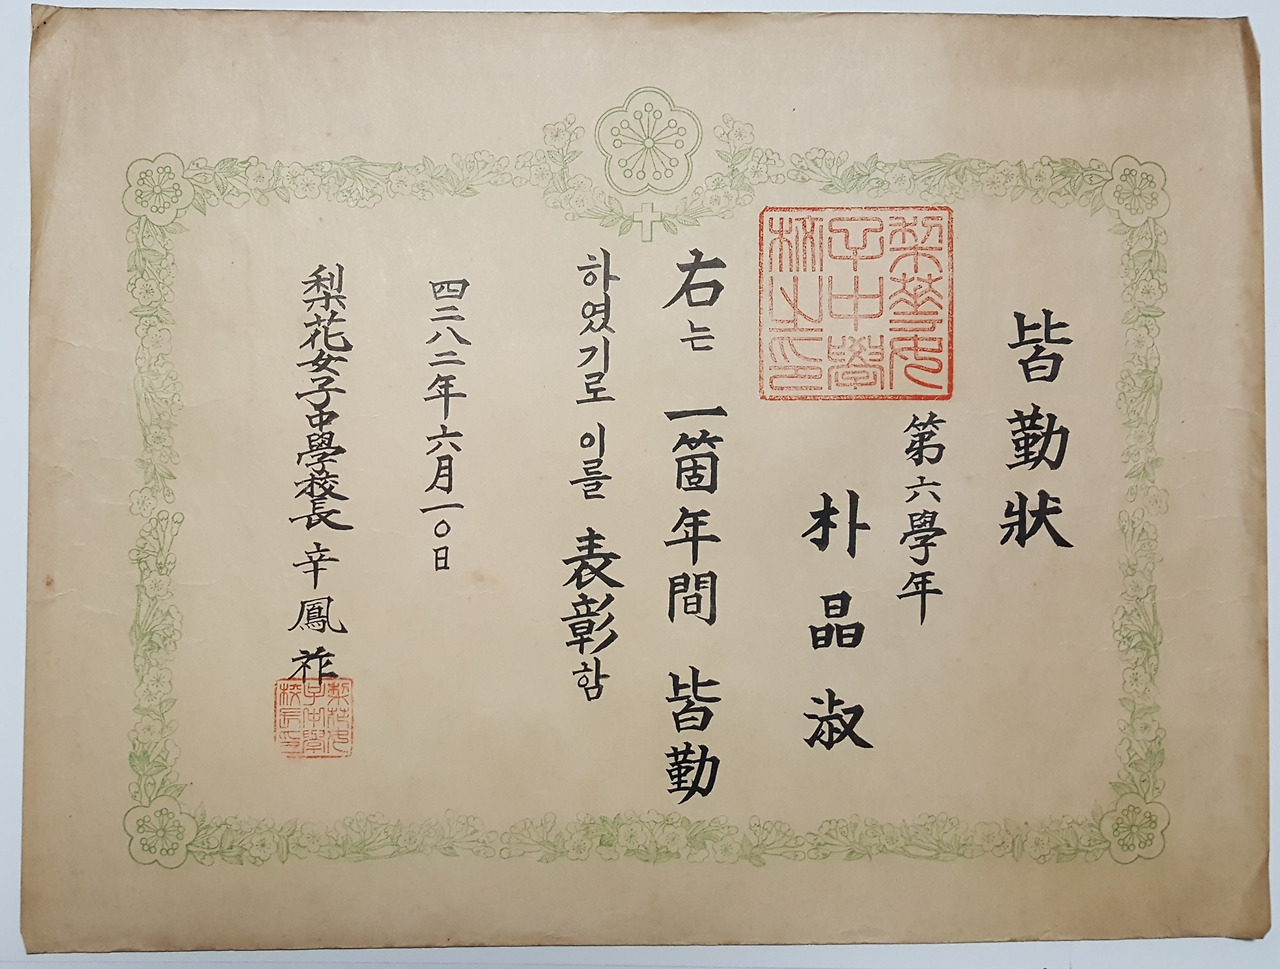 皆勤狀
第六學年
朴晶淑
右는 一箇年間 皆勤
하였기로 이를 表彰함
四二八二年六月一〇日
梨花女子中學校長 辛鳳祚
梨花女子中學校之印
梨花女子中學校長印